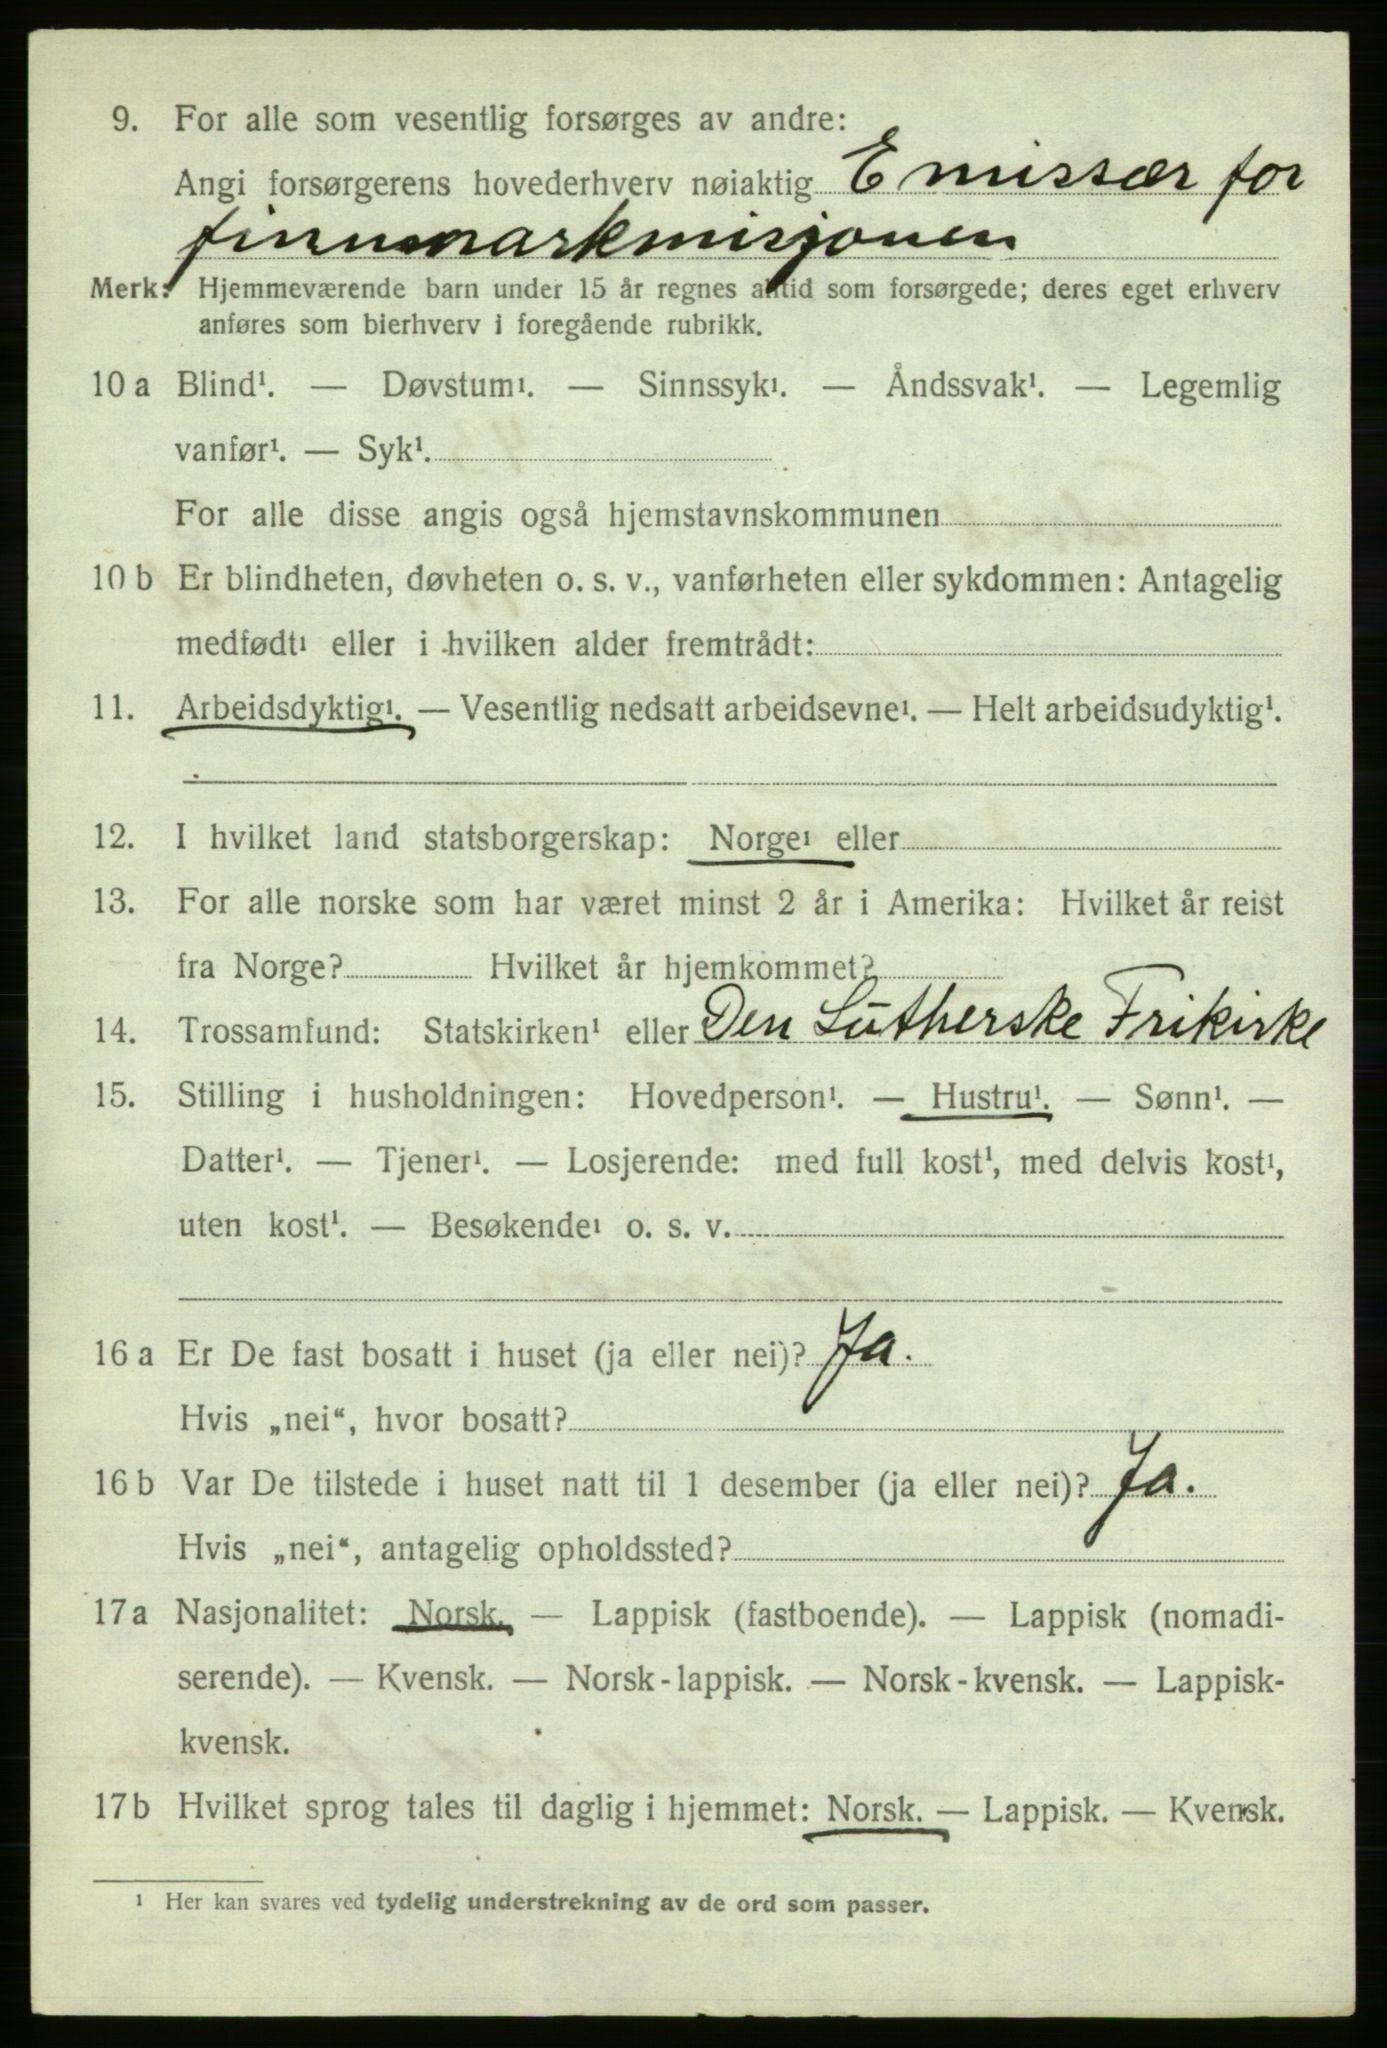 9. For alle som vesentlig forsørges av andre:
Angi forsørgerens hovederhverv nøiaktig Emissær for
finnmarkmisjonen
Merk: Hjemmeværende barn under 15 år regnes altid som forsørgede; deres eget erhverv
anføres som bierhverv i foregående rubrikk.
10 a Blind¹. — Døvstum¹. — Sinnssyk¹. — Åndssvak¹. — Legemlig
vanfør¹. — Syk¹.
For alle disse angis også hjemstavnskommunen
10 b Er blindheten, døvheten o. s. v., vanførheten eller sykdommen: Antagelig
medfødt¹ eller i hvilken alder fremtrådt:
11. Arbeidsdyktig¹. — Vesentlig nedsatt arbeidsevne¹. — Helt arbeidsudyktig¹.
12. I hvilket land statsborgerskap: Norge¹ eller
13. For alle norske som har været minst 2 år i Amerika: Hvilket år reist
fra Norge? Hvilket år hjemkommet?
14. Trossamfund: Statskirken¹ eller Den Lutherske Frikirke
15. Stilling i husholdningen: Hovedperson¹. — Hustru¹. — Sønn¹. —
Datter¹. — Tjener¹. — Losjerende: med full kost¹, med delvis kost¹,
uten kost¹. — Besøkende¹ o. s. v.
16 a Er De fast bosatt i huset (ja eller nei)? Ja.
Hvis „nei“, hvor bosatt?
16 b Var De tilstede i huset natt til 1 desember (ja eller nei)? Ja.
Hvis „nei“, antagelig opholdssted?
17 a Nasjonalitet: Norsk. — Lappisk (fastboende). — Lappisk (nomadi-
serende). — Kvensk. — Norsk-lappisk. — Norsk-kvensk. — Lappisk-
kvensk.
17 b Hvilket sprog tales til daglig i hjemmet: Norsk. — Lappisk. — Kvensk.
¹ Her kan svares ved tydelig understrekning av de ord som passer.